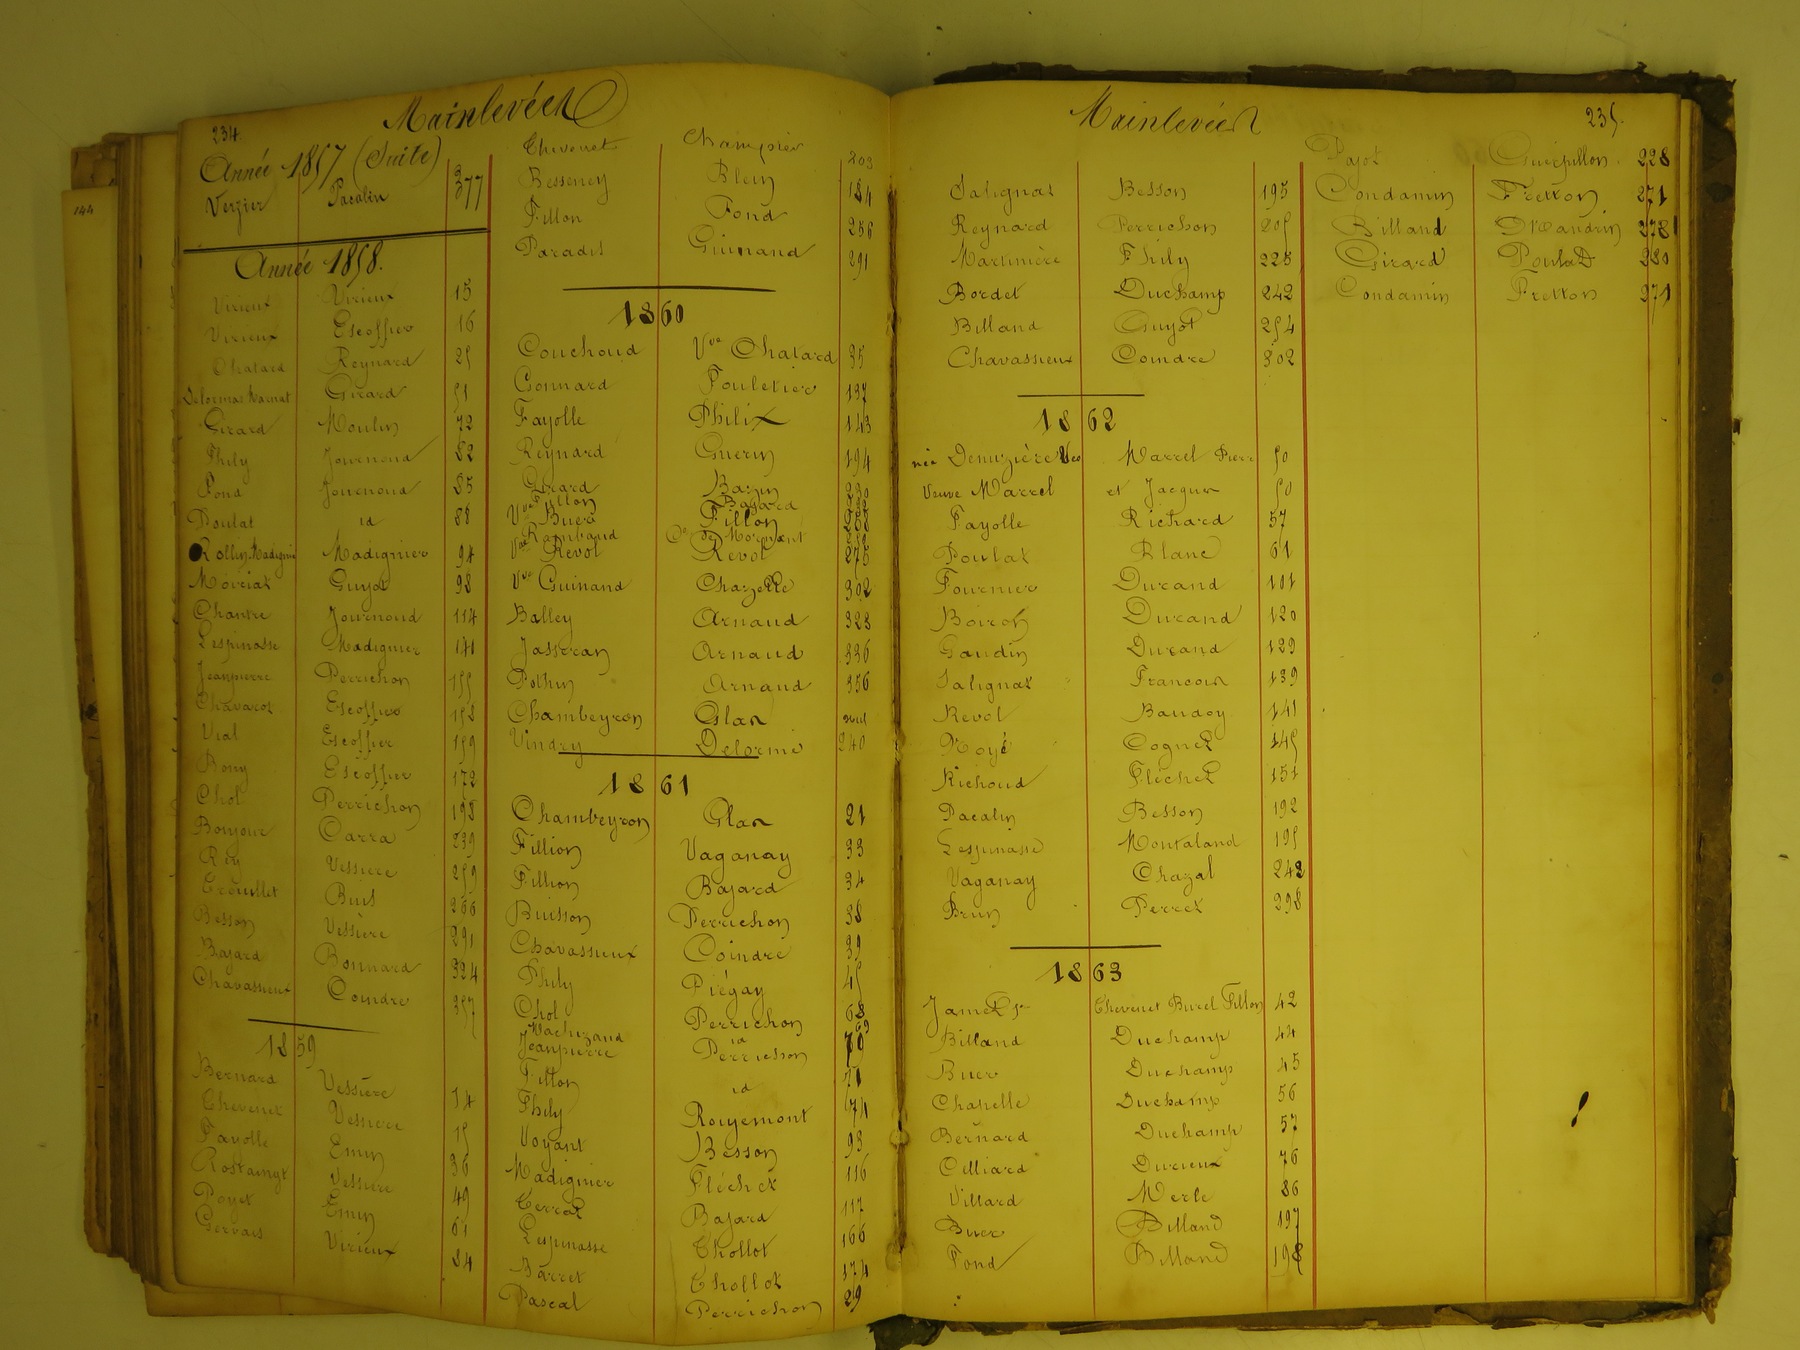 144
234.
Mainlevées
Année 1857 (Suite)
Verzier Pacalin 377
Année 1858.
Virieux Virieux 15
Virieux Escoffier 16
Chatard Reynard 25
Delormas Girard 51
Girard Moulin 72
Thily Journoud 82
Fond Journoud 85
Poulat id 88
Rollin Madignier Madignier 94
Moiriat Guyot 98
Chantre Journoud 114
Lespinasse Madignier 141
Jeanpierre Perrichon 155
Chavarot Escoffier 158
Vial Escoffier 159
Bony Escoffier 172
Chol Perrichon 195
Bonjour Carra 239
Rey Vessiere 259
Trouillet Buis 266
Besson Vessière 291
Bajard Bonnard 324
Chavassieux Coindre 357
1859
Bernard Vessière 14
Thevenet Vessiere 15
Fayolle Emin 36
Rostaingt Vessiere 49
Poyet Emin 61
Gervais Virieux 84
Thevenet Champier 203
Besseney Blein 184
Fillon Fond 256
Paradis Guinand 291
1860
Couchoud Vve Chatard 35
Gonnard Fouletier 137
Fayolle Philix 143
Reynard Guerin 194
Girard Bazin
Vve Fillon Bajard
Buer Fillon
Vve Rambaud De de Mornant
Revol Revol
Vve Guinand Chazelle 302
Balley Arnaud 323
Jasseran Arnaud 336
Pothin Arnaud 356
Chambeyron Glas nul
Vindry Delorme 240
1861
Chambeyron Glas 21
Fillion Vaganay 33
Fillion Bajard 34
Buisson Perrichon 38
Chavassieux Coindre 39
Thily Piégay 45
Chol Perrichon 68
Machizaud id 69
Jeanpierre Perrichon 70
Fillon id 71
Thily Rougemont 74
Voyant Besson 93
Madignier Fléchet 116
Terrat Bajard 117
Lespinasse Thollot 166
Barret Thollot 174
Pascal Perrichon 29
Mainlevées
235.
Salignat Besson 195
Reynard Perrichon 205
Martinière Thily 228
Bordet Duchamp 242
Billand Guyot 254
Chavassieux Coindre 302
1862
née Denuzière Vve Marrel Pierre 50
Veuve Marrel et Jacques 50
Fayolle Richard 57
Poulat Blanc 61
Fournier Durand 101
Boiron Durand 120
Gaudin Durand 129
Salignat Francois 139
Revol Baudoy 141
Noyé Cognet 145
Richoud Fléchet 151
Pacalin Besson 192
Lespinasse Montaland 195
Vaganay Chazal 242
Brun Perret 298
1863
Jamet Thevenet Burel Fillon 42
Billand Duchamp 44
Buer Duchamp 45
Chapelle Duchamp 56
Bernard Duchamp 57
Cilliard Durieux 76
Villard Merle 86
Buer Billand 197
Fond Billand 198
Pajot Guerpillon 228
Condamin Fretton 271
Billand 278
Girard Poulat 280
Condamin Fretton 271